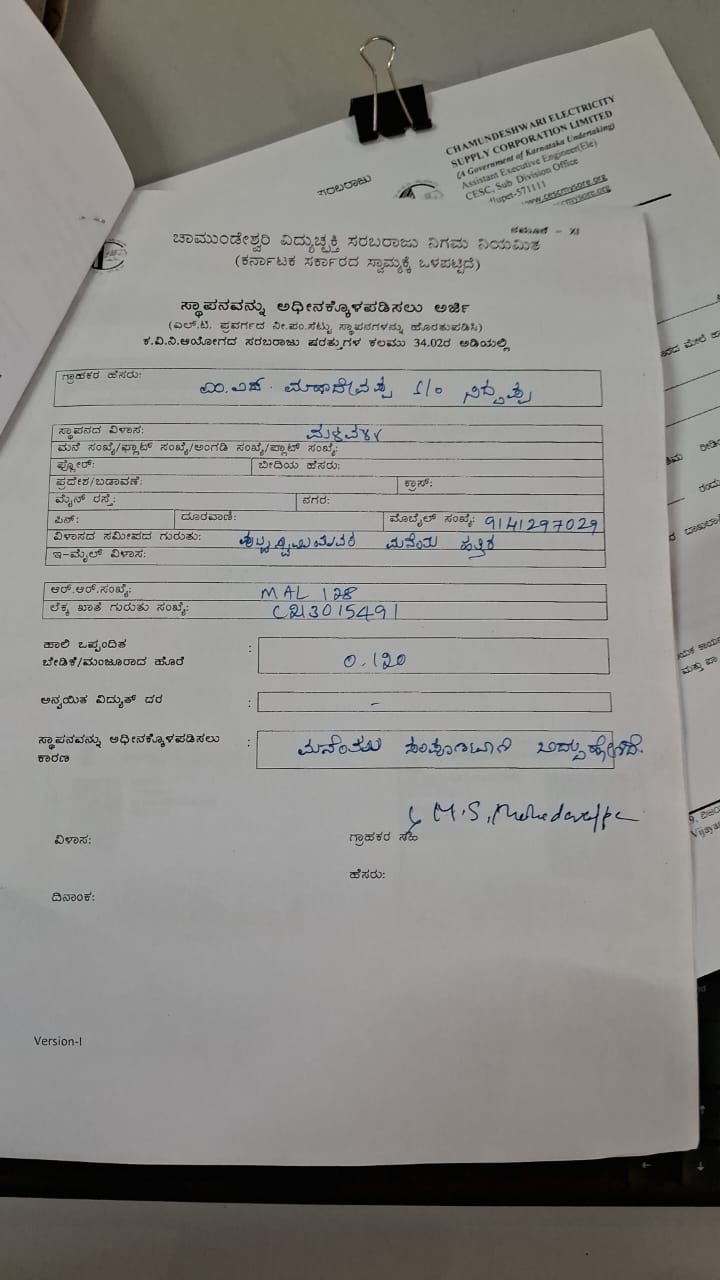 CHAMUNDESHWARI ELECTRICITY
SUPPLY CORPORATION LIMITED
(A Government of Karnataka Undertaking)
Assistant Executive Engineer(Ele)
CESC, Sub Division Office
571111
www.cescmysore.org
ಸರಬರಾಜು
ನಮೂನೆ – XI
ಚಾಮುಂಡೇಶ್ವರಿ ವಿದ್ಯುಚ್ಛಕ್ತಿ ಸರಬರಾಜು ನಿಗಮ ನಿಯಮಿತ
(ಕರ್ನಾಟಕ ಸರ್ಕಾರದ ಸ್ವಾಮ್ಯಕ್ಕೆ ಒಳಪಟ್ಟಿದೆ)
ಸ್ಥಾಪನವನ್ನು ಅಧೀನಕ್ಕೊಳಪಡಿಸಲು ಅರ್ಜಿ
(ಎಲ್.ಟಿ. ಪ್ರವರ್ಗದ ನೀ.ಪಂ.ಸೆಟ್ಟು ಸ್ಥಾಪನಗಳನ್ನು ಹೊರತುಪಡಿಸಿ)
ಕ.ವಿ.ನಿ.ಆಯೋಗದ ಸರಬರಾಜು ಷರತ್ತುಗಳ ಕಲಮು 34.02ರ ಅಡಿಯಲ್ಲಿ
ಗ್ರಾಹಕರ ಹೆಸರು: ಎಂ.ಎಸ್. ಮಹಾದೇವಪ್ಪ S/o ಸಿದ್ದಪ್ಪ
ಸ್ಥಾಪನದ ವಿಳಾಸ: ಮಳವಳ್ಳಿ
ಮನೆ ಸಂಖ್ಯೆ/ಫ್ಲಾಟ್ ಸಂಖ್ಯೆ/ಅಂಗಡಿ ಸಂಖ್ಯೆ/ಪ್ಲಾಟ್ ಸಂಖ್ಯೆ:
ಫ್ಲೋರ್: ಬೀದಿಯ ಹೆಸರು:
ಪ್ರದೇಶ/ಬಡಾವಣೆ: ಕ್ರಾಸ್:
ಮೈನ್ ರಸ್ತೆ: ನಗರ:
ಪಿನ್: ದೂರವಾಣಿ: ಮೊಬೈಲ್ ಸಂಖ್ಯೆ: 9141297029
ವಿಳಾಸದ ಸಮೀಪದ ಗುರುತು: ಮನೆಯ ಹತ್ತಿರ
ಇ-ಮೈಲ್ ವಿಳಾಸ:
ಆರ್.ಆರ್.ಸಂಖ್ಯೆ: MAL 128
ಲೆಕ್ಕ ಖಾತೆ ಗುರುತು ಸಂಖ್ಯೆ: C213015491
ಹಾಲಿ ಒಪ್ಪಂದಿತ
ಬೇಡಿಕೆ/ಮಂಜೂರಾದ ಹೊರೆ : 0.120
ಅನ್ವಯಿತ ವಿದ್ಯುತ್ ದರ : -
ಸ್ಥಾಪನವನ್ನು ಅಧೀನಕ್ಕೊಳಪಡಿಸಲು
ಕಾರಣ : ಸಂಪೂರ್ಣವಾಗಿ ಬಿದ್ದುಹೋಗಿದೆ.
M.S. Mahadevappa
ವಿಳಾಸ: ಗ್ರಾಹಕರ ಸಹಿ
ಹೆಸರು:
ದಿನಾಂಕ:
Version-I